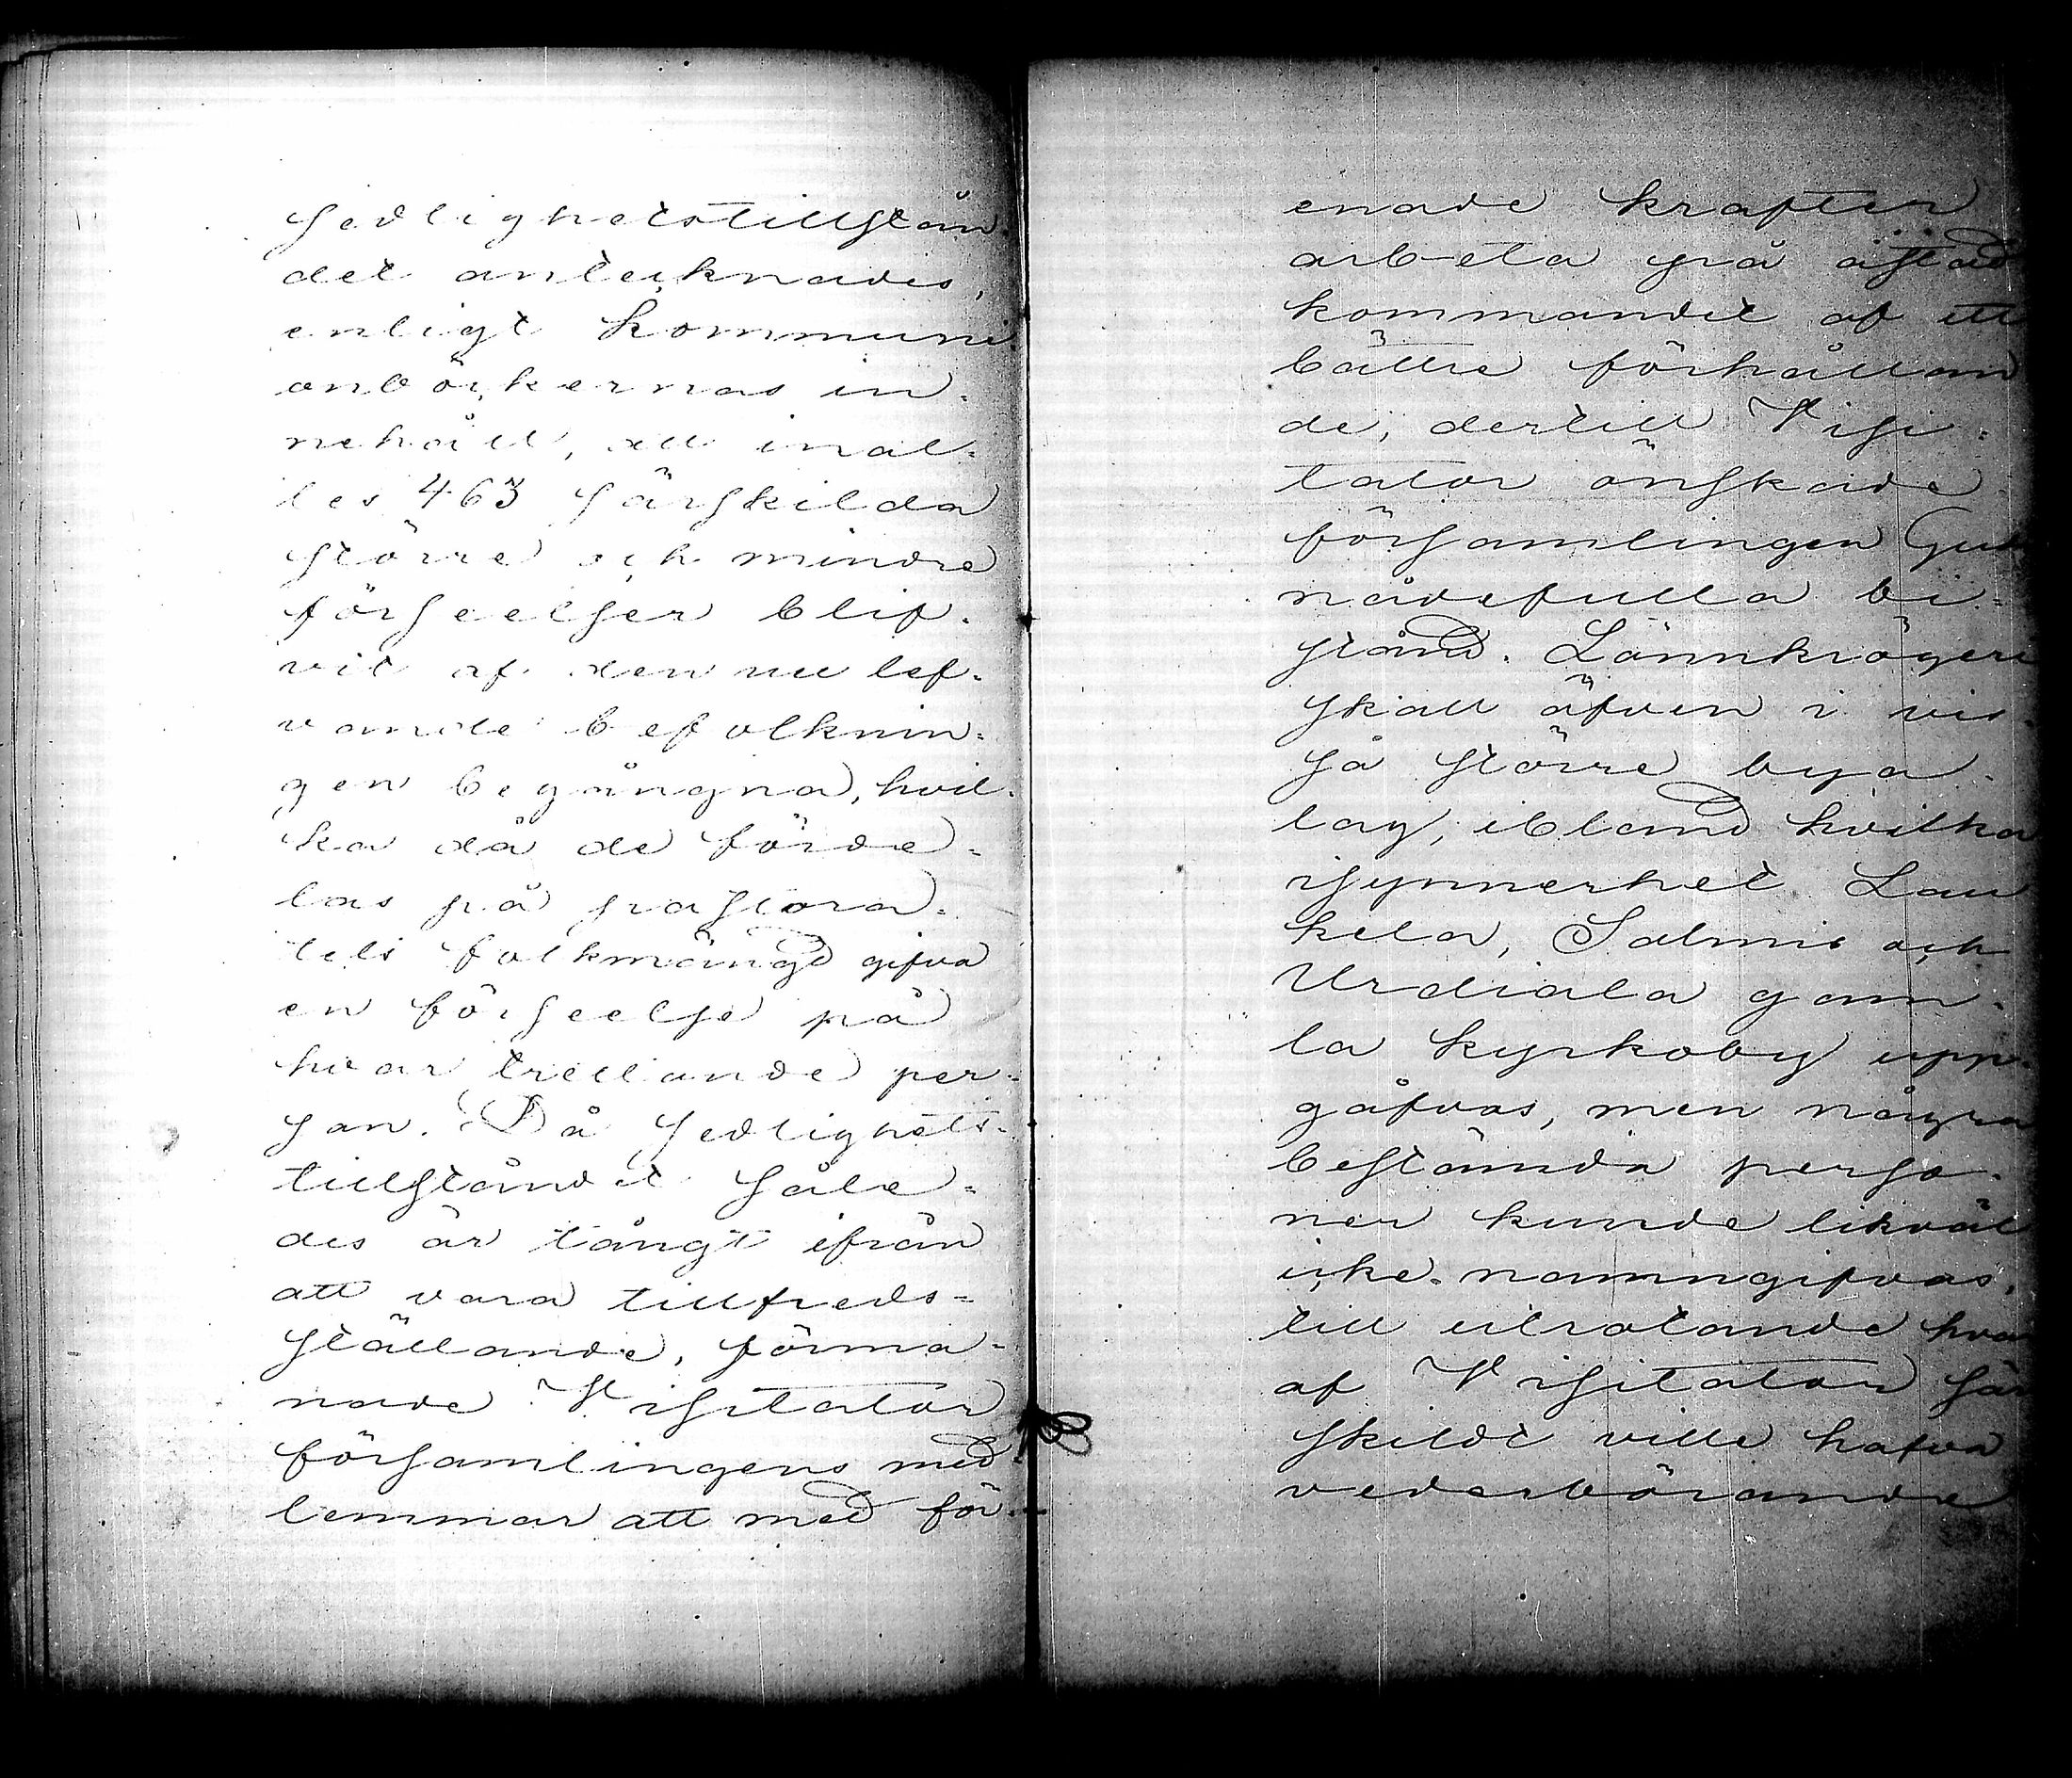 sedlighetstillstån-
det antecknades,
enligt kommuni-
onböckernas in-
nehåll, att inal-
les 463 särskilda
större och mindre
förseelser blif-
vit af den nu lef-
vande befolknin-
gen begångna, hvil-
ka då de förde-
las på pastora-
tets folkmängd gifva
en förseelse på
hvar trettande per-
son. Då sedlighets-
tillståndet såle-
des är långt ifrån
att vara tillfreds-
ställande, förma-
nade Visitator
församlingens med-
lemmar att med för-
enade krafter
arbeta på åstad
kommandet af ett
bättre förhållan
de, dertill Visi-
tator önskade
församlingen Guds
nådefulla bi-
stånd. Lönnkrögeri
skall äfven i vis-
sa större bya-
lag, ibland hvilka
isynnerhet Lau
kela, Salmis och
Urdiala gam-
la kyrkoby upp-
gåfvos, men några
bestämda perso-
ner kunde likväl
icke namngifvas,
till utrotande hvar
af Visitator sär
skildt ville hafva
vederbörande